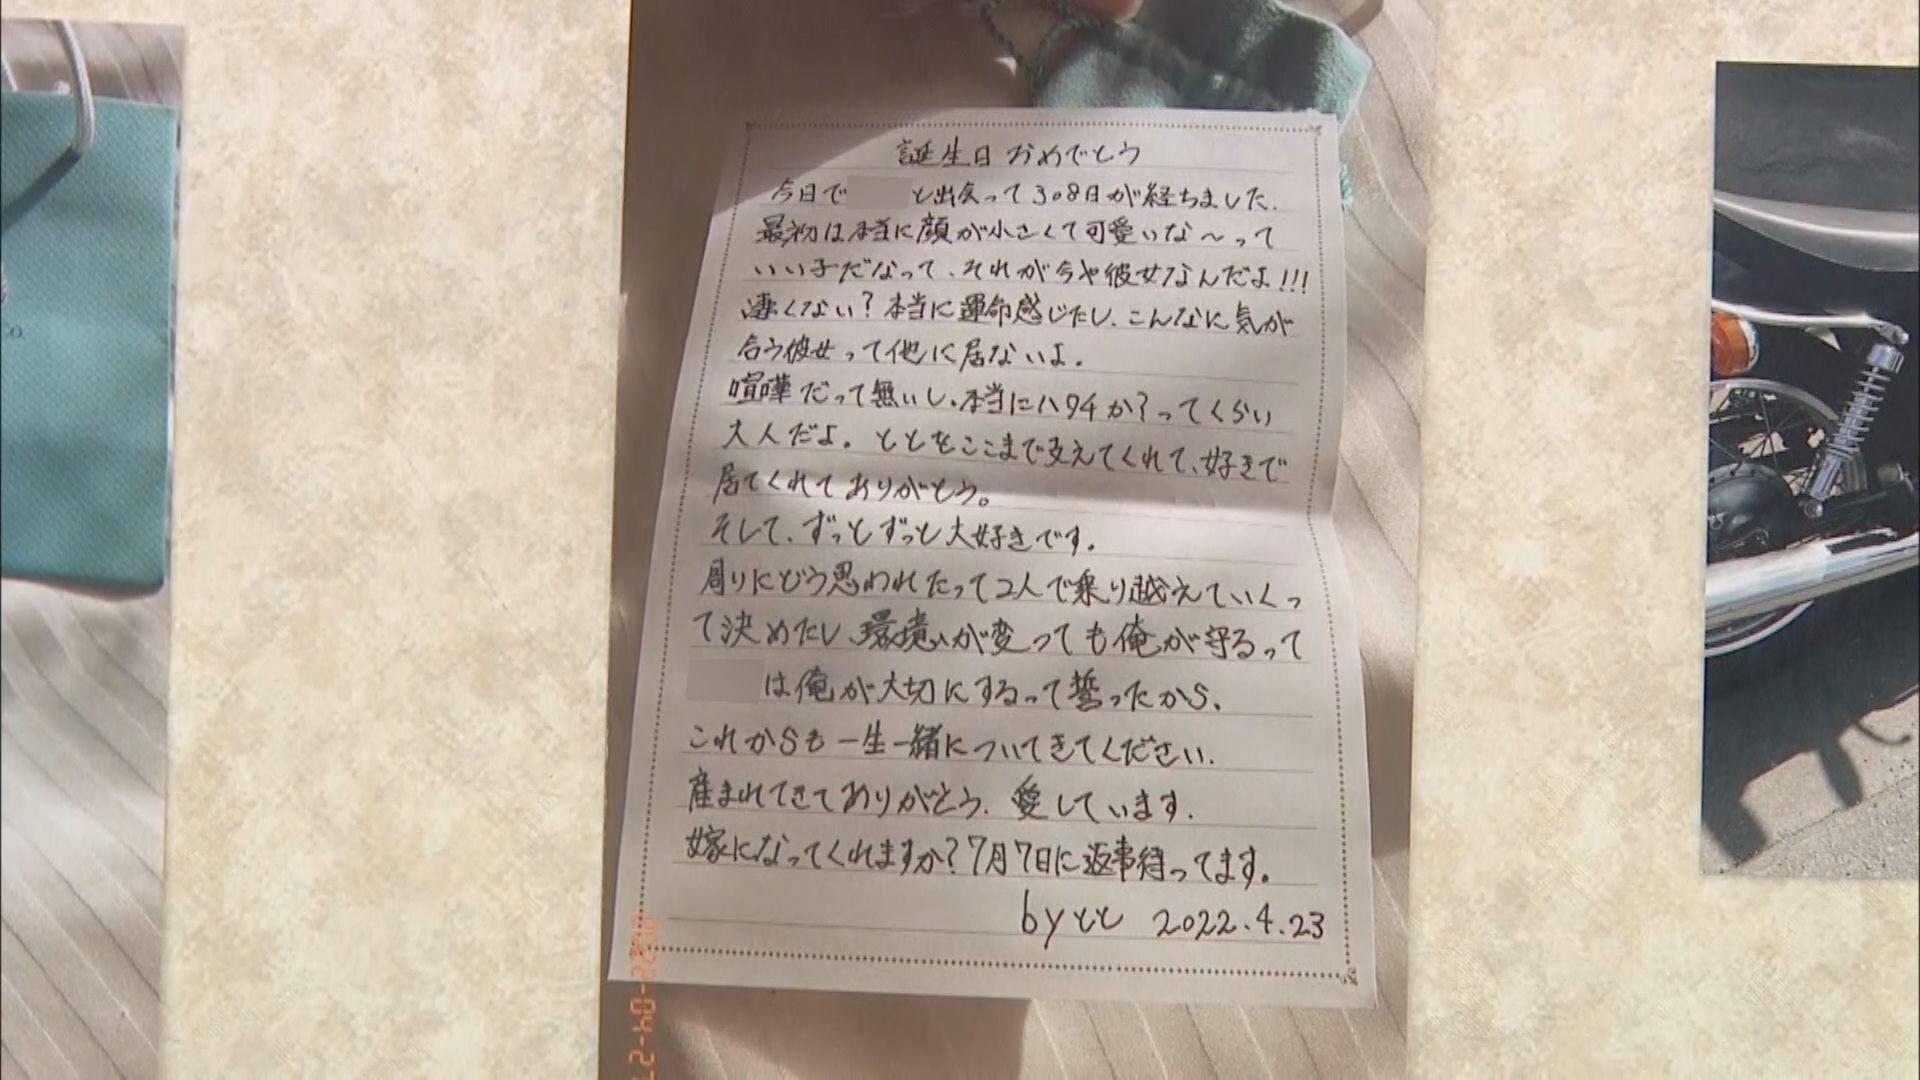 誕生日おめでとう
今日で
と出会って308日が経ちました.
最初は本当に顔が小さくて可愛いな〜って
いい子だなって、それが今や彼女なんだよ!!!
凄くない?本当に運命感じたし、こんなに気が
合う彼女って他に居ないよ.
喧嘩だって無いし、本当にハタチか?ってくらい
大人だよ。ととをここまで支えてくれて、好きで
居てくれてありがとう。
そして、ずっとずっと大好きです.
周りにどう思われたって2人で乗り越えていくっ
て決めたし、環境が変っても俺が守るって
は俺が大切にするって誓ったから、
これからも一生一緒についてきてください.
産まれてきてありがとう.愛しています.
嫁になってくれますか?7月7日に返事待ってます。
byとと 2022.4.23
Co.